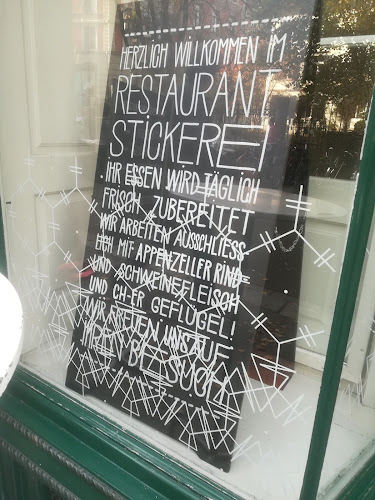 HERZLICH WILLKOMMEN IM
RESTAURANT
STICKEREI
IHR ESSEN WIRD TÄGLICH
FRISCH ZUBEREITET
WIR ARBEITEN AUSSCHLIESS-
LICH MIT APPENZELLER RIND-
UND SCHWEINEFLEISCH
UND CH-ER GEFLÜGEL!
WIR FREUEN UNS AUF
IHREN BESUCH!